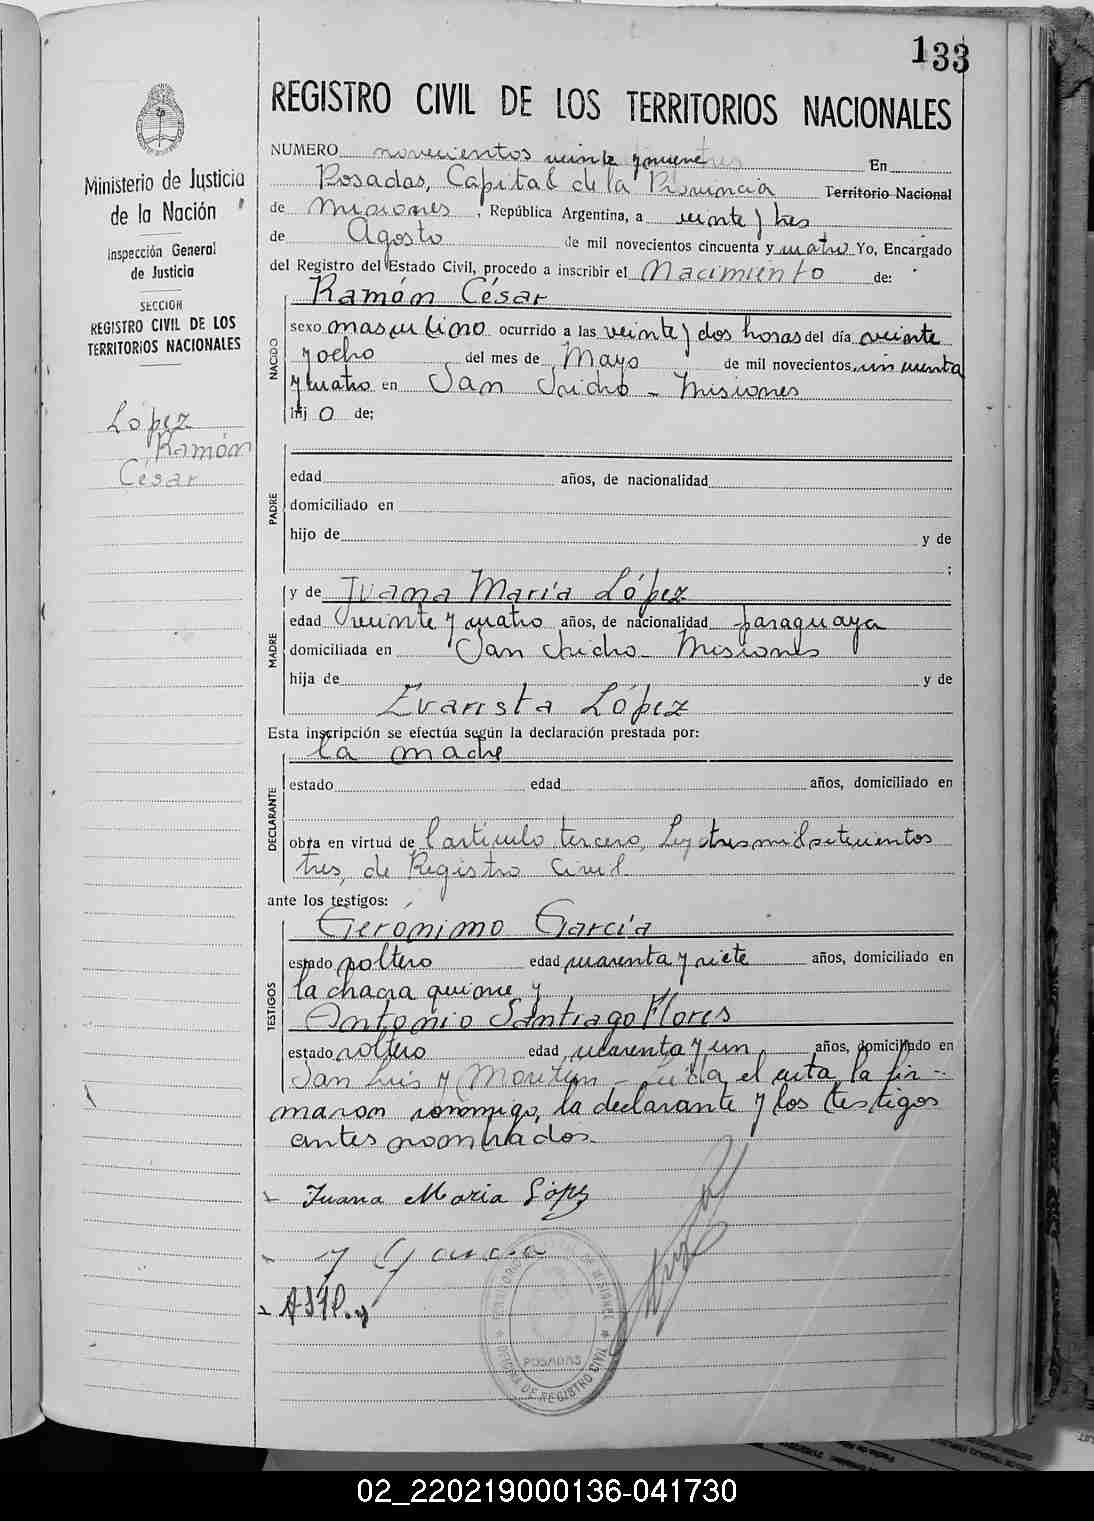 133
REGISTRO CIVIL DE LOS TERRITORIOS NACIONALES
Ministerio de Justicia
de la Nación
Inspección General
de Justicia
SECCION
REGISTRO CIVIL DE LOS
TERRITORIOS NACIONALES
López
Ramón
César
NUMERO novecientos veinte y nueve En
Posadas, Capital de la Provincia Territorio Nacional
de Misiones, República Argentina, a veinte y tres
de Agosto de mil novecientos cincuenta y cuatro Yo, Encargado
del Registro del Estado Civil, procedo a inscribir el Nacimiento de:
NACIDO
Ramón César
sexo masculino ocurrido a las veinte y dos horas del día veinte
y ocho del mes de Mayo de mil novecientos cincuenta
y cuatro en San Isidro - Misiones
hijo de;
PADRE
edad años, de nacionalidad
domiciliado en
hijo de y de
;
MADRE
y de Juana María López
edad veinte y cuatro años, de nacionalidad paraguaya
domiciliada en San Isidro - Misiones
hija de y de
Evarista López
Esta inscripción se efectúa según la declaración prestada por:
DECLARANTE
la madre
estado edad años, domiciliado en
obra en virtud de l artículo tercero, Ley tres mil setecientos
tres, de Registro Civil.
ante los testigos:
TESTIGOS
Gerónimo García
estado soltero edad cuarenta y siete años, domiciliado en
la chacra quince y
Antonio Santiago Flores
estado soltero edad cuarenta y un años, domiciliado en
San Luis y Leída el acta, la fir-
maron conmigo, la declarante y los testigos
antes nombrados.
Juana Maria López
y Garcia
POSADAS
OFICINA DE REGISTRO CIVIL
02_220219000136-041730